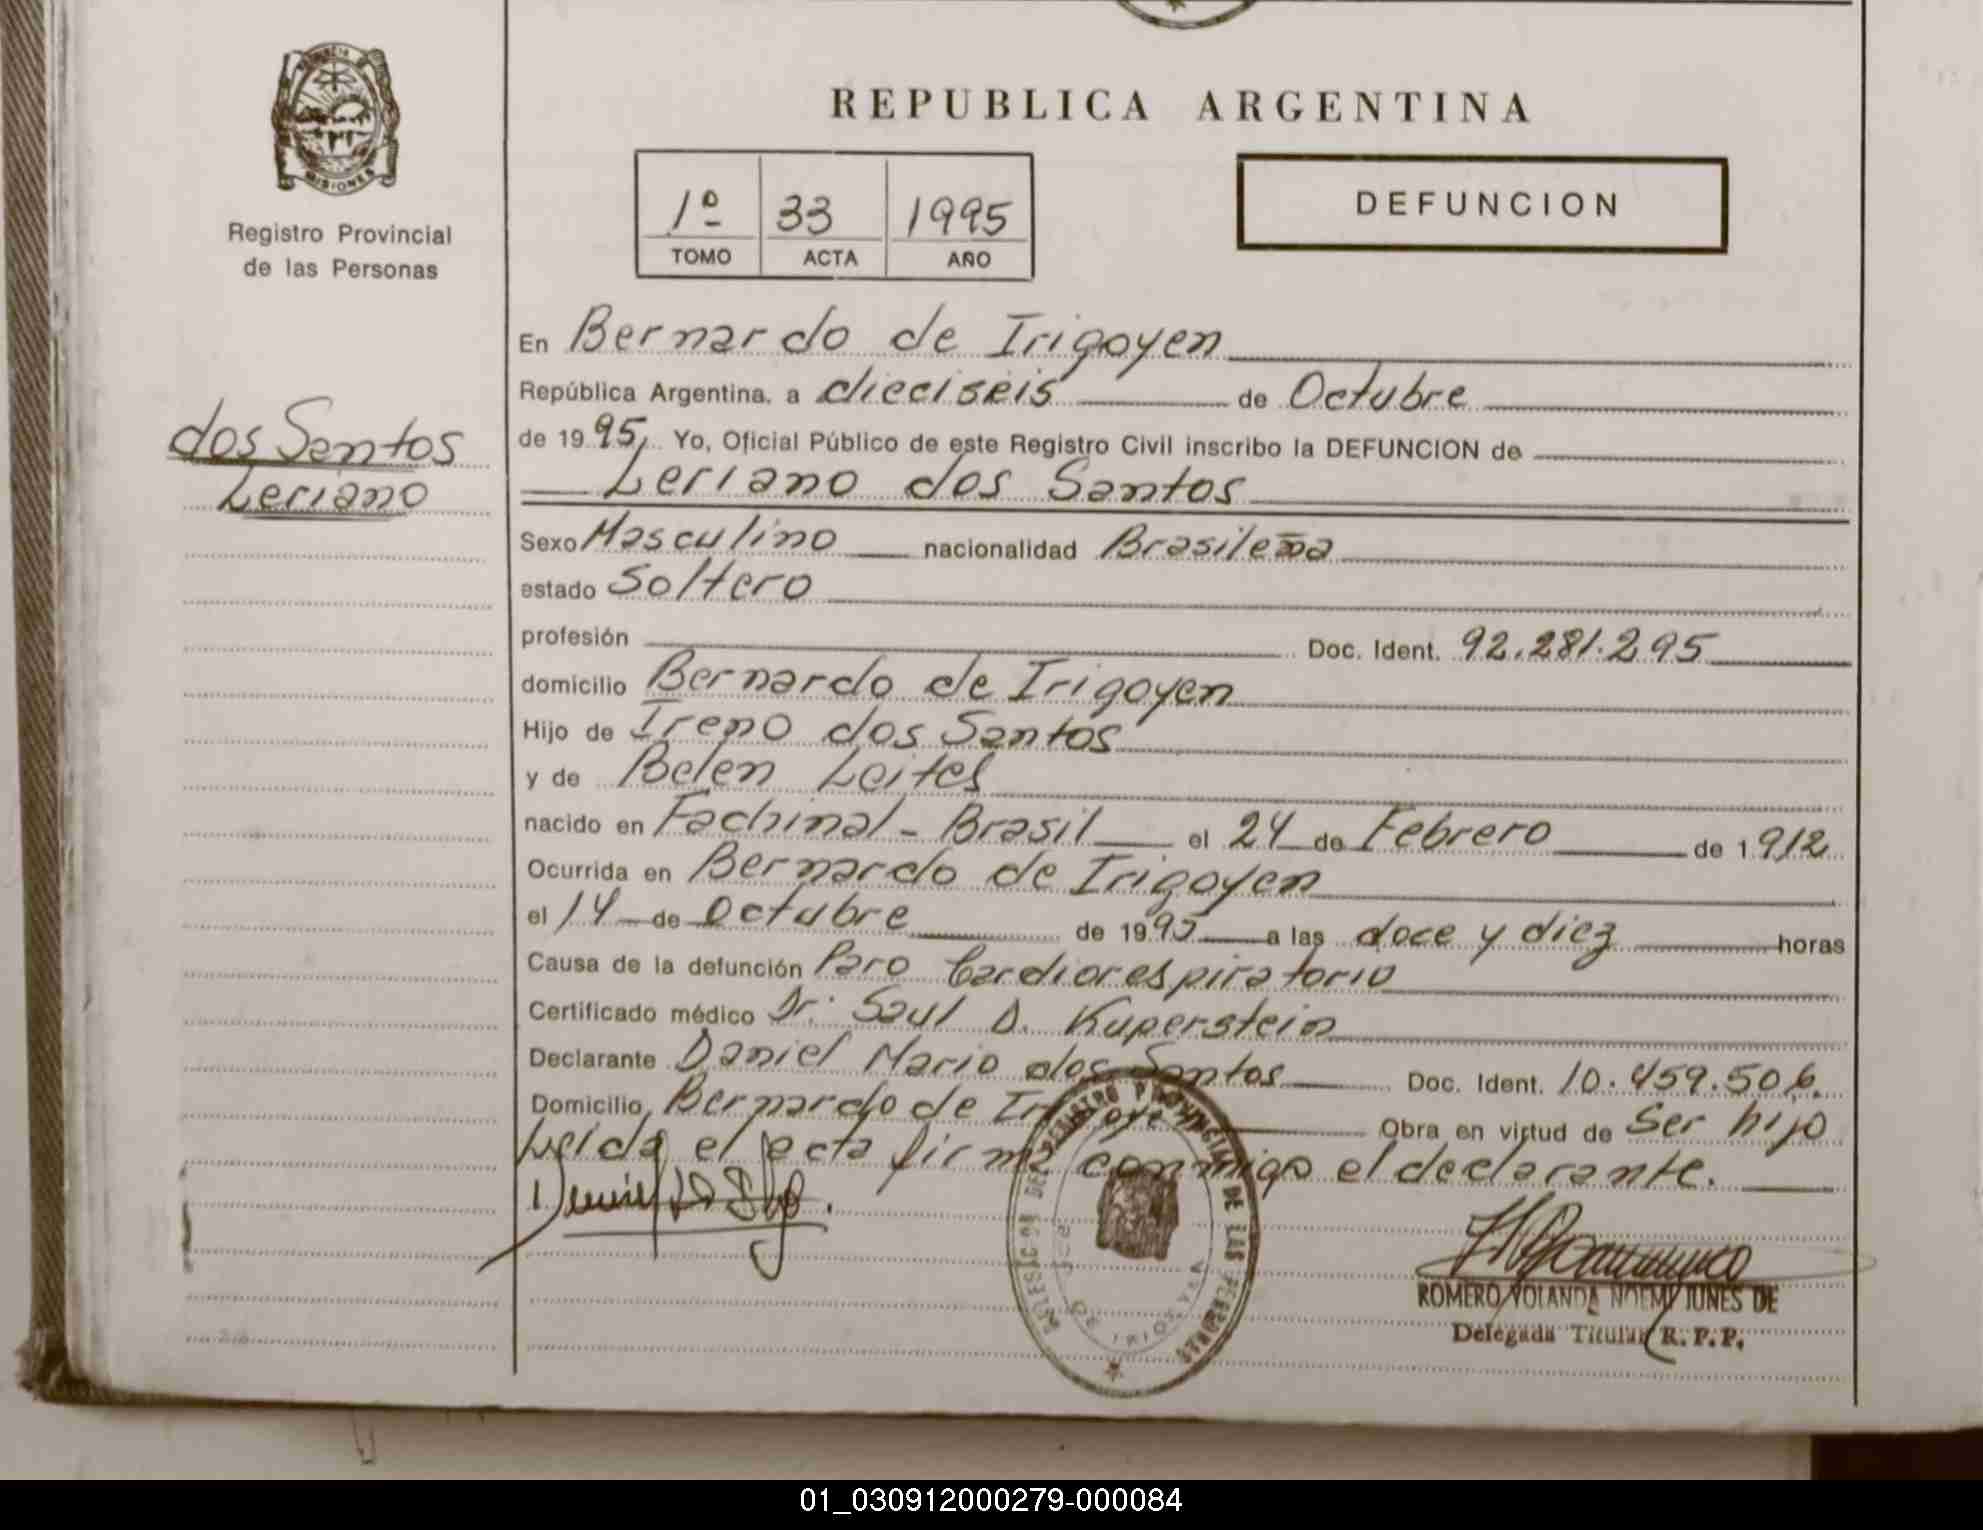 PROVINCIA DE
MISIONES
Registro Provincial
de las Personas
dos Santos
Leriano
REPUBLICA ARGENTINA
1º 33 1995
TOMO ACTA AÑO
DEFUNCION
En Bernardo de Irigoyen
República Argentina, a dieciseis de Octubre
de 1995, Yo, Oficial Público de este Registro Civil inscribo la DEFUNCION de
Leriano dos Santos
Sexo Masculino nacionalidad Brasileña
estado Soltero
profesión Doc. Ident. 92.281.295
domicilio Bernardo de Irigoyen
Hijo de Ireno dos Santos
y de Belen Leites
nacido en Fachinal - Brasil el 24 de Febrero de 1912
Ocurrida en Bernardo de Irigoyen
el 14 de Octubre de 1995 a las doce y diez horas
Causa de la defunción Paro Cardiorespiratorio
Certificado médico Dr. Saul D. Kuperstein
Declarante Daniel Mario dos Santos Doc. Ident. 10.459.506.
Domicilio Bernardo de Irigoyen Obra en virtud de Ser hijo
Leida el acta firma conmigo el declarante.
REGISTRO PROVINCIAL DE LAS PERSONAS
ROMERO, YOLANDA NOEMI IUNES DE
Delegada Titular R. P. P.
01_030912000279-000084